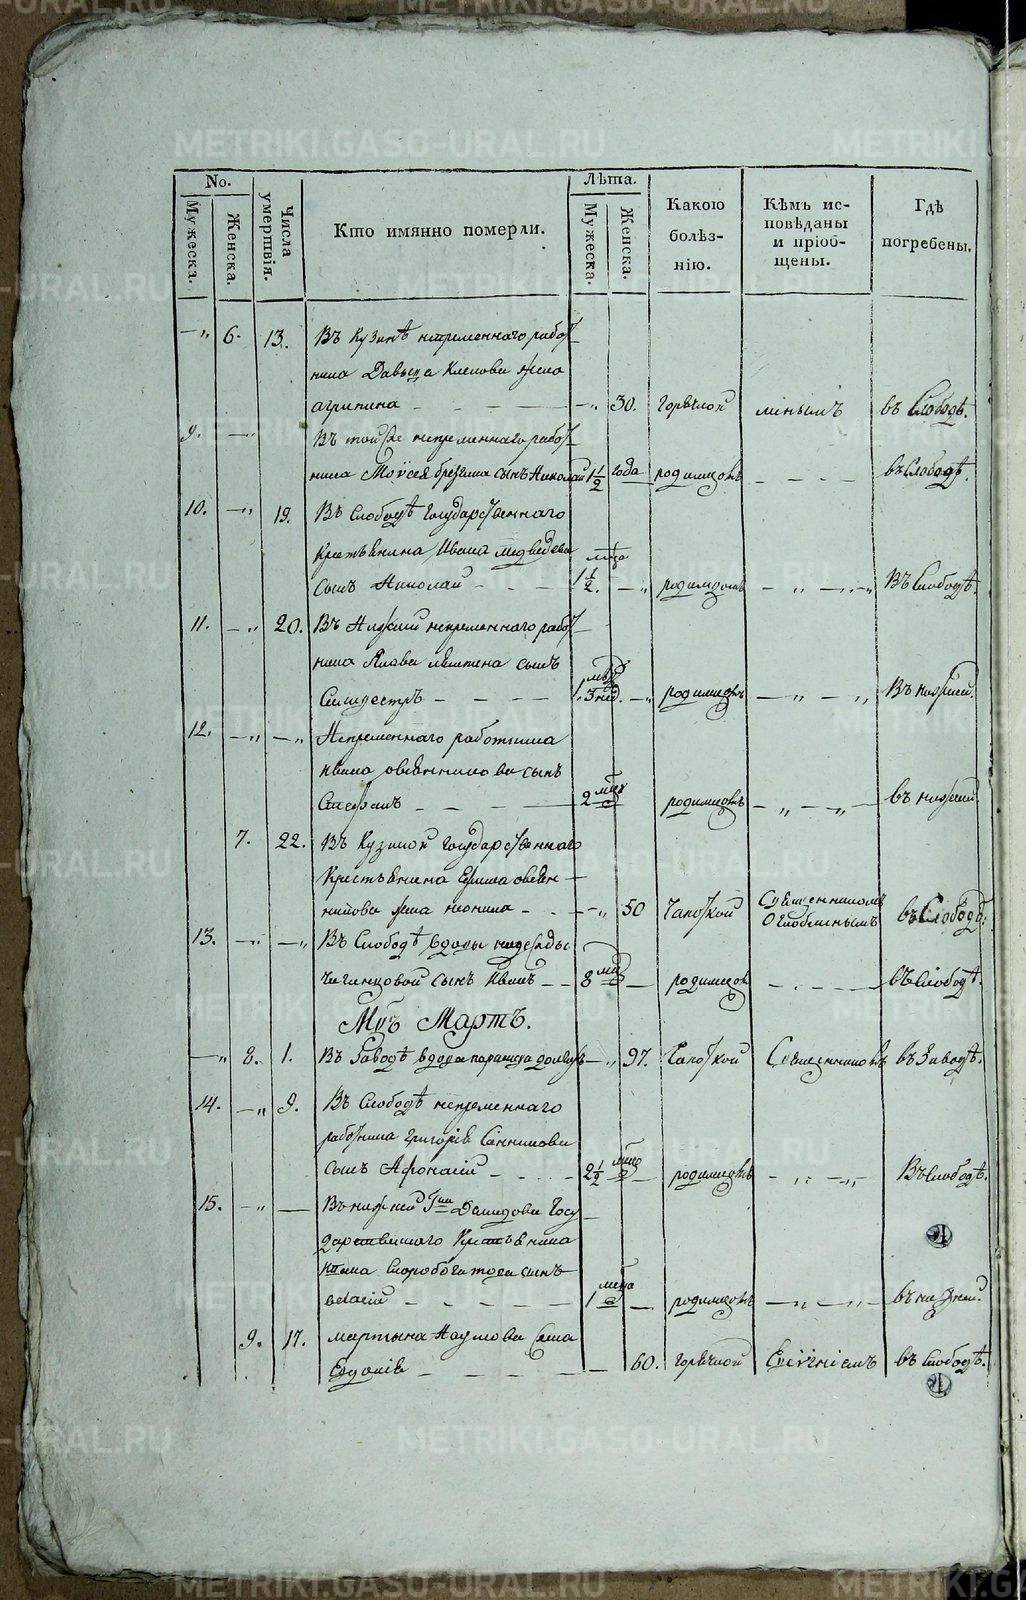 METRIKI.GASO-URAL.RU
No.
Мужеска.
Женска.
Числа умертвія.
Кто имянно померли.
Лѣта.
Мужеска.
Женска.
Какою болѣз-
нію.
Кѣмъ ис-
повѣданы
и пріоб-
щены.
Гдѣ
погребены.
—„ 6. 13. Въ Кузинѣ непременнаго работ
ника Давыда жена
агрипина — — — —„ 30. горячкой въ Слободѣ.
9. —„ Въ той же непременнаго работ
ника Моѵсея сынъ Николай 1 1/2 года родимцомъ — — — въ Слободѣ.
10. —„ 19. Въ Слободѣ государственнаго
Крестьянина Ивана медведева
сынъ Николай — — 1 1/2 мца —„ родимцомъ — „ —„ Въ Слободѣ.
11. —„ 20. Въ непременнаго работ
ника Якова сынъ
Силивестръ — — — 1. 3 нед. —„ родимцомъ — „ — „ Въ нижней.
12. —„ —„ Непременнаго работника
Ивана овчинникова сынъ
Стефанъ — — — 2 мца родимцомъ — „ — „ въ нижней.
7. 22. Въ Кузиной государственнаго
Крестьянина овчин
никова жена неонила — —„ 50 Чахоткой Священникомъ
въ Слободѣ.
13. —„ —„ Въ Слободѣ вдовы надежды
чигинцовой сынъ Иванъ — — 8 мца — родимцомъ — — — въ Слободѣ.
Мцъ Мартъ.
—„ 8. 1. Въ Заводѣ вдова —„ 97. Чахоткой Священникомъ въ Заводѣ.
14. —„ 9. Въ Слободѣ непременнаго
работника григорія Санникова
сынъ Афонасій — — — 2 1/2 мца — родимцомъ — „ —„ Въ Слободѣ.
15. —„ — Въ нижней Гна Демидова Госу
дарственнаго Крестьянина
Скоробогатова сынъ
василій — — — — 1 мца — родимцомъ —„ —„ въ нижней.
9. 17. мартына Наумова жена
Евдокія — — — — — 60. горячкой въ Слободѣ.